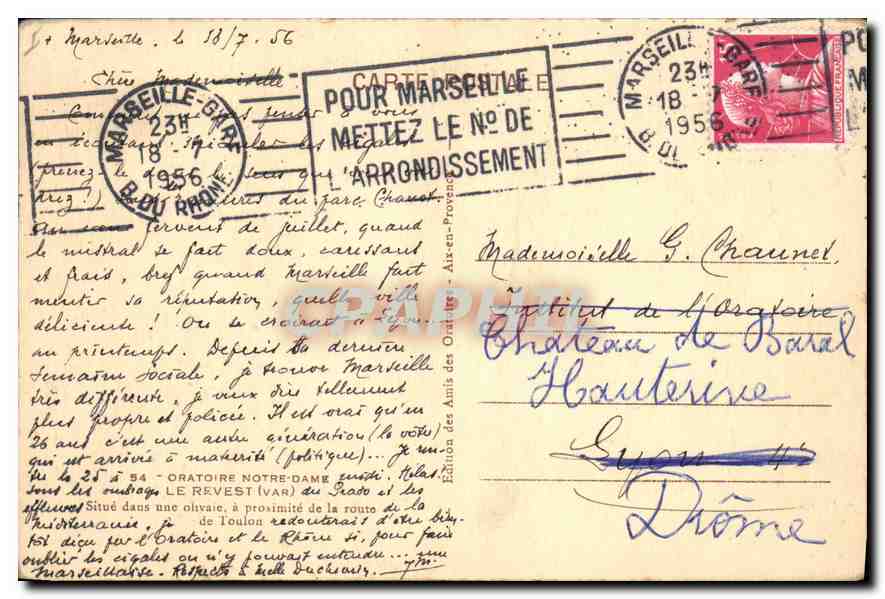 + Marseille. le 18/7. 56
Chère Mademoiselle
MARSEILLE-GARE
23H
18 - 7
1956
B. DU RHONE
POUR MARSEILLE
METTEZ LE No DE
L'ARRONDISSEMENT
CARTE POSTALE
MARSEILLE-GARE
23H
18 - 7
1956
B. DU RHONE
REPUBLIQUE FRANCAISE
PO
M
L
(prenez le
du parc Chanot.
fervent de juillet, quand
le mistral se fait doux, caressant
et frais, bref quand Marseille fait
mentir sa réputation, quelle ville
délicieuse ! On se croirait à Lyon...
au printemps. Depuis la dernière
Semaine Sociale, je trouve Marseille
très différente, je veux dire tellement
plus propre et policée. Il est vrai qu'en
26 ans c'est une autre génération (la vôtre)
qui est arrivée à maturité (politique)... Je
le 25 à midi. Hélas.
54 - ORATOIRE NOTRE-DAME
sous les ombrages du Prado et les
LE REVEST (VAR)
effluves de la
Situé dans une olivaie, à proximité de la route
de Toulon
méditerranée, je redouterais d'être bien
tôt déçu par l'Oratoire et le Rhône si, pour faire
oublier les cigales on n'y pouvait entendre... une
Marseillaise. Respects à Melle
Edition des Amis des Oratoires - Aix-en-Provence
Mademoiselle G. Chaunet,
Institut de l'Oratoire
Château de Baral
Hauterive
Lyon
Drôme
CPAPHIL